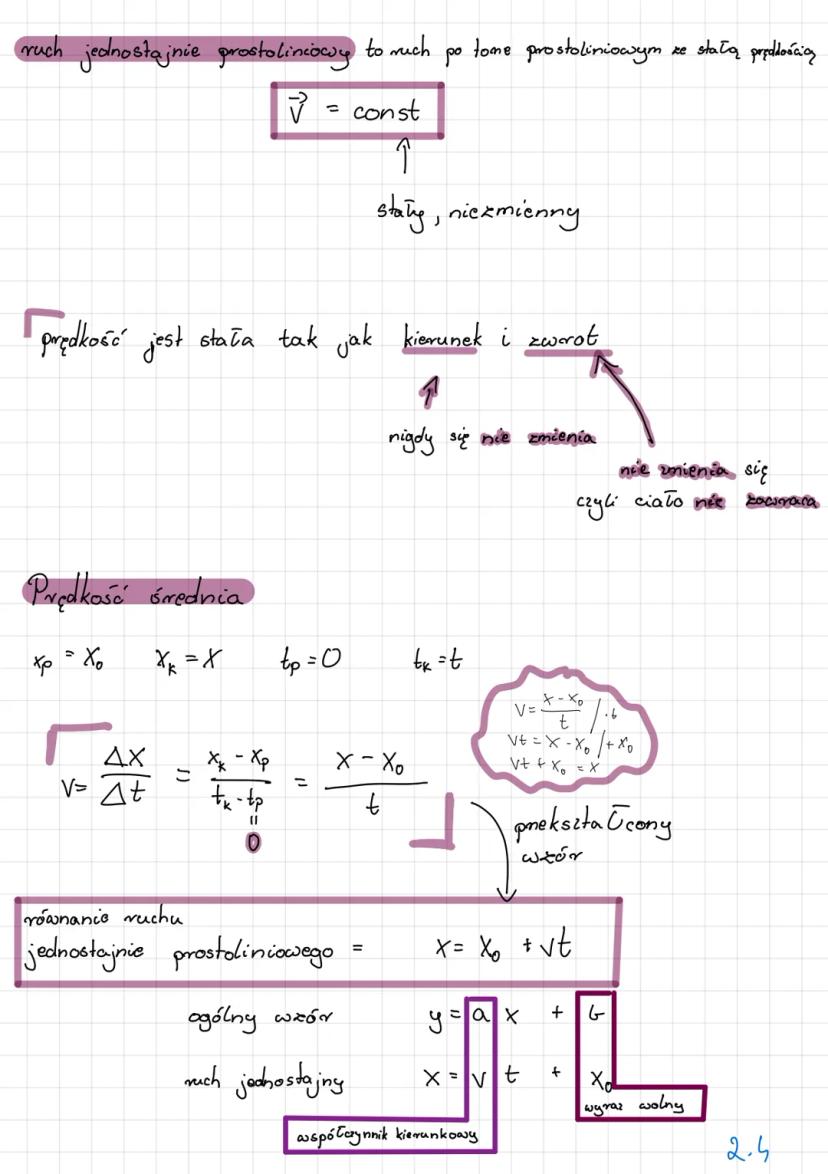 ruch jednostajnie prostoliniowy to ruch po torze prostoliniowym ze stałą prędkością
v⃗ = const
↑
stały, niezmienny
prędkość jest stała tak jak kierunek i zwrot
nigdy się nie zmienia
nie zmienia się
czyli ciało nie zawraca
Prędkość średnia
xp = x₀ xₖ = x tp = 0 tₖ = t
v = (x - x₀)/t /·t
vt = x - x₀ /+ x₀
vt + x₀ = x
v = Δx/Δt = (xₖ - xp)/(tₖ - tp) = (x - x₀)/t
=
0
przekształcony
wzór
równanie ruchu
jednostajnie prostoliniowego = x = x₀ + vt
ogólny wzór y = a x + b
ruch jednostajny x = v t + x₀
wyraz wolny
współczynnik kierunkowy
2.4